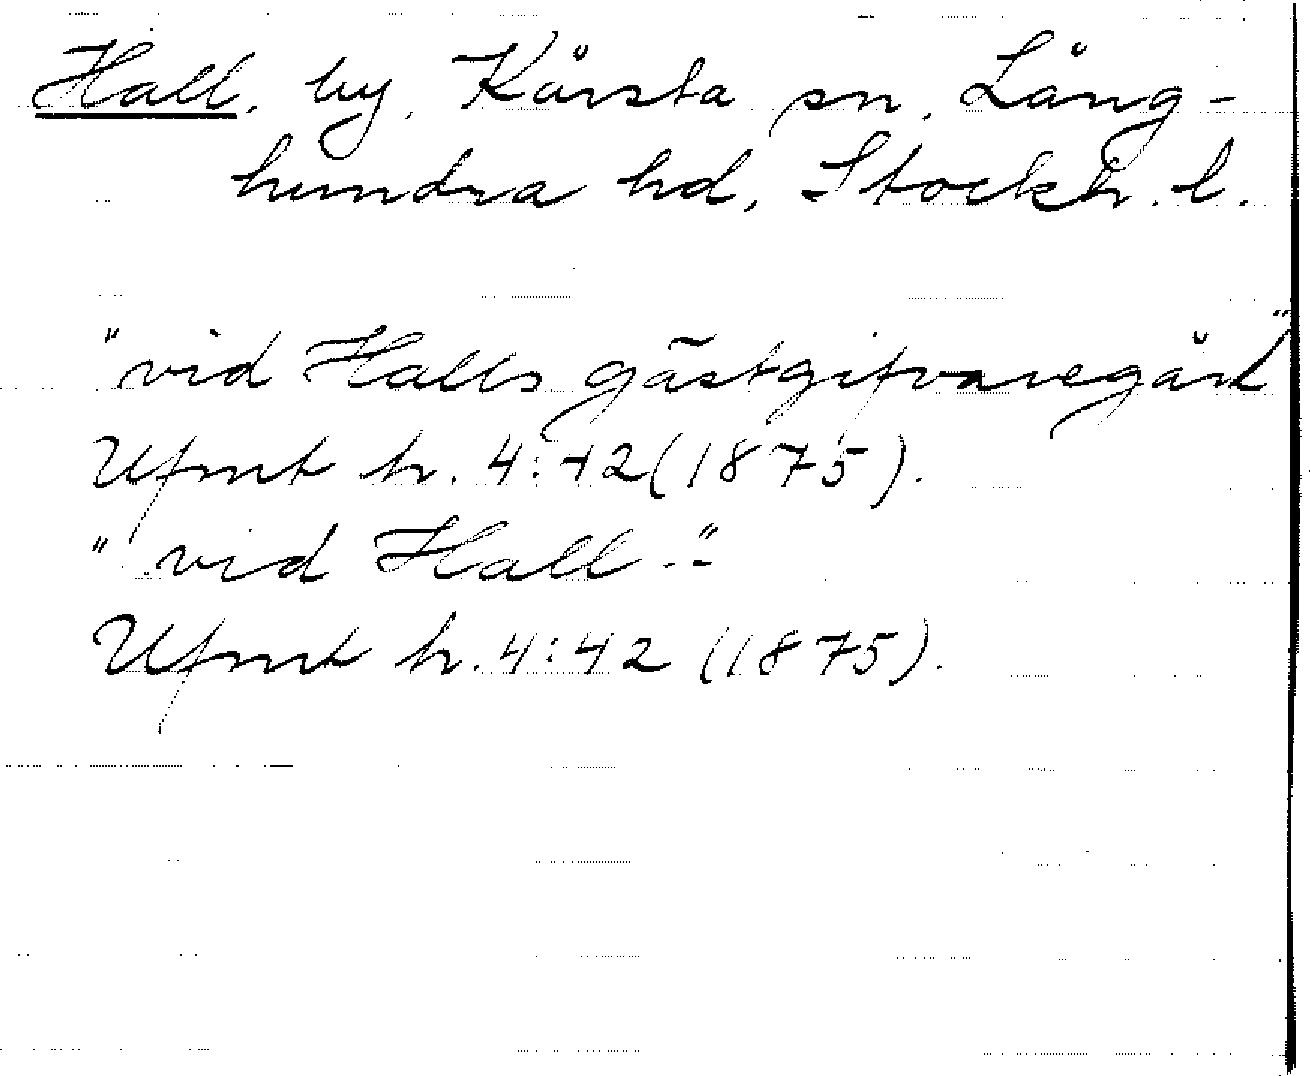 Hall, by, Kårsta sn, Lång-
hundra hd, Stockh. l.
"vid Halls gästgifvaregård"
Ufmt h. 4:42 (1875).
"vid Hall -"
Ufmt h. 4:42 (1875).